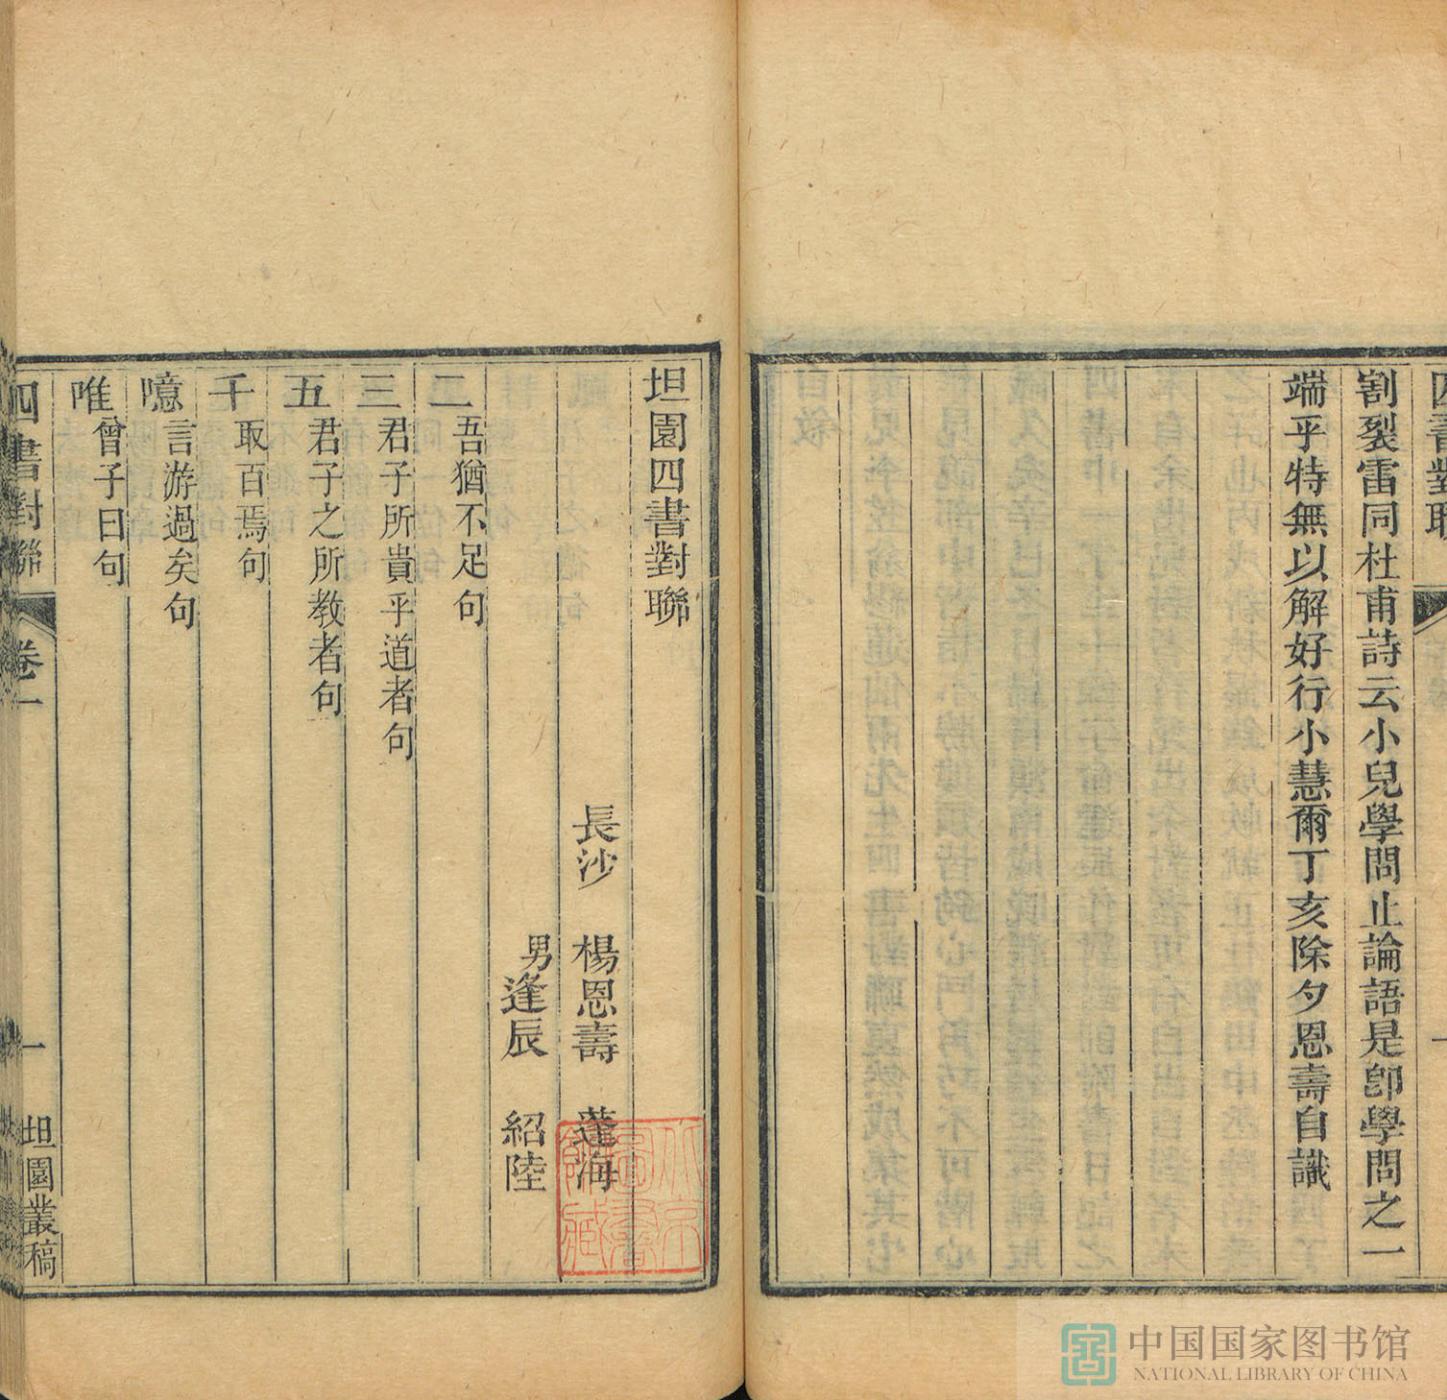 四書對聯
一
割裂雷同杜甫詩云小兒學問止論語是卽學問之一
端乎特無以解好行小慧爾丁亥除夕恩壽自識
坦園四書對聯
長沙 楊恩壽 蓬海
男逢辰 紹陸
二吾猶不足句
三君子所貴乎道者句
五君子之所教者句
千取百焉句
噫言游過矣句
唯曾子曰句
四書對聯 卷一 一 坦園叢稿
中国国家图书馆
NATIONAL LIBRARY OF CHINA